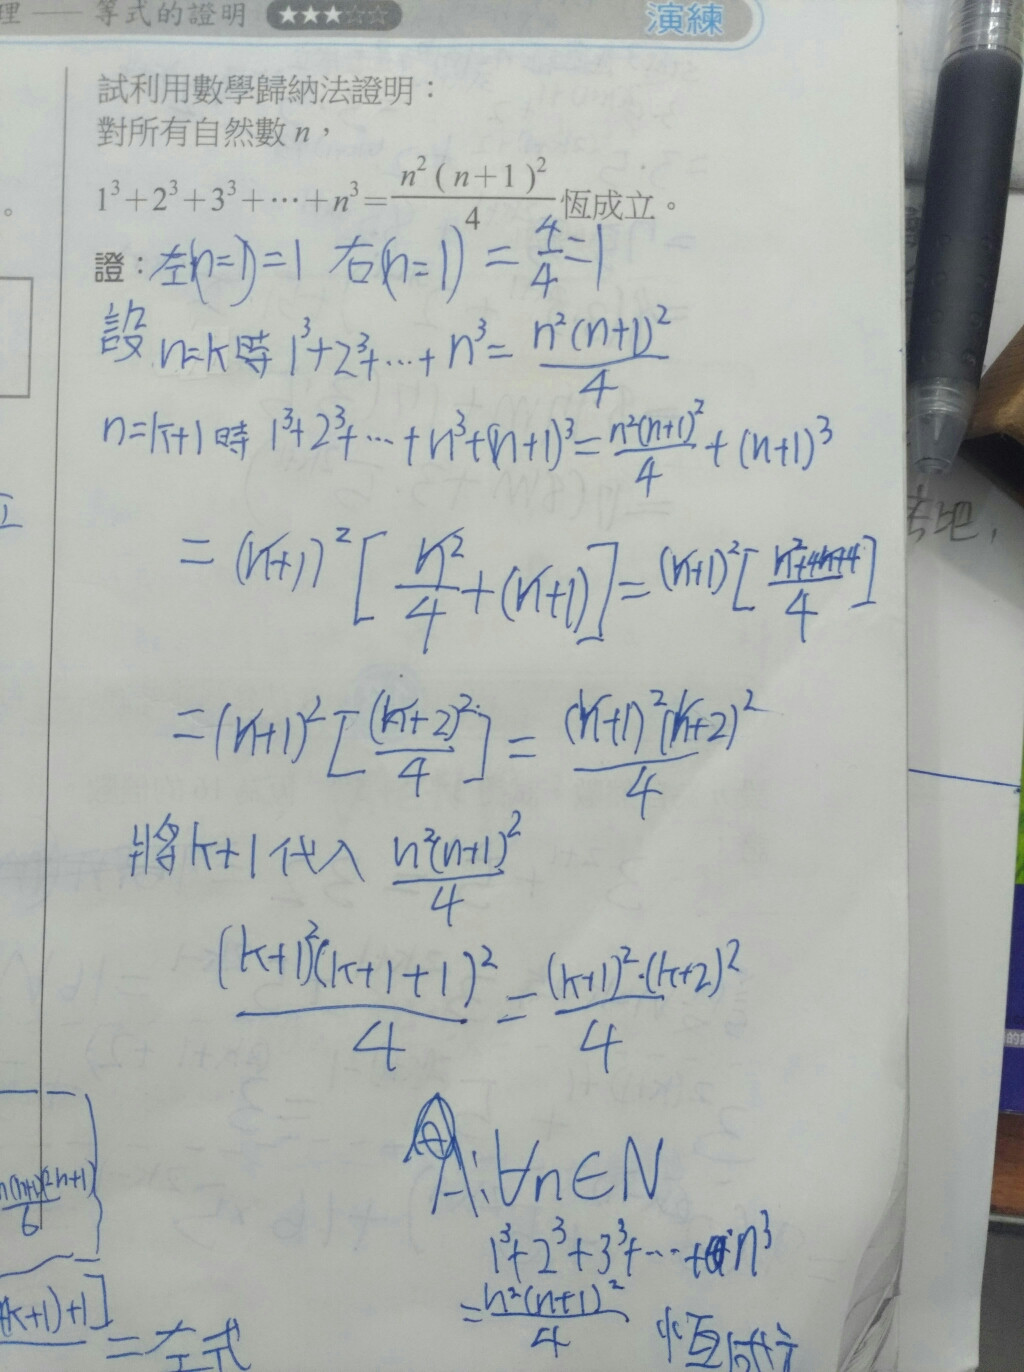 理 —— 等式的證明 ★★★☆☆
演練
試利用數學歸納法證明：
對所有自然數 n，
1³+2³+3³+⋯+n³=n²(n+1)²/4 恆成立。
證：左(n=1)=1 右(n=1)=4/4=1
設 n=k時 1³+2³+⋯+n³=n²(n+1)²/4
n=k+1時 1³+2³+⋯+n³+(n+1)³=n²(n+1)²/4+(n+1)³
=(k+1)²[k²/4+(k+1)]=(k+1)²[k²+4k+4/4]
=(k+1)²[(k+2)²/4]=(k+1)²(k+2)²/4
將k+1代入 n²(n+1)²/4
(k+1)²(k+1+1)²/4=(k+1)²·(k+2)²/4
A:∀n∈N
1³+2³+3³+⋯+n³
=n²(n+1)²/4 恆成立
。
n(n+1)(2n+1)/6
(k+1)+1]
=左式
吧,